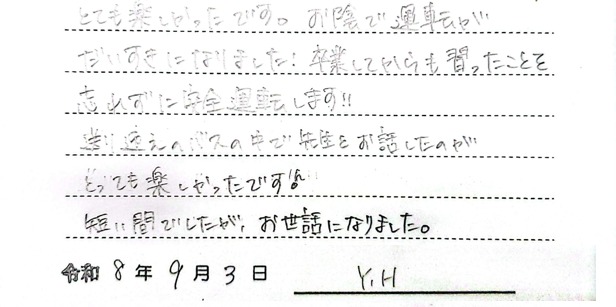 とても楽しかったです。お陰で運転が
だいすきになりました!卒業してからも習ったことを
忘れずに安全運転します!!
送り迎えのバスの中で先生とお話したのが
とっても楽しかったです
短い間でしたが、お世話になりました。
令和8年9月3日 Y.H